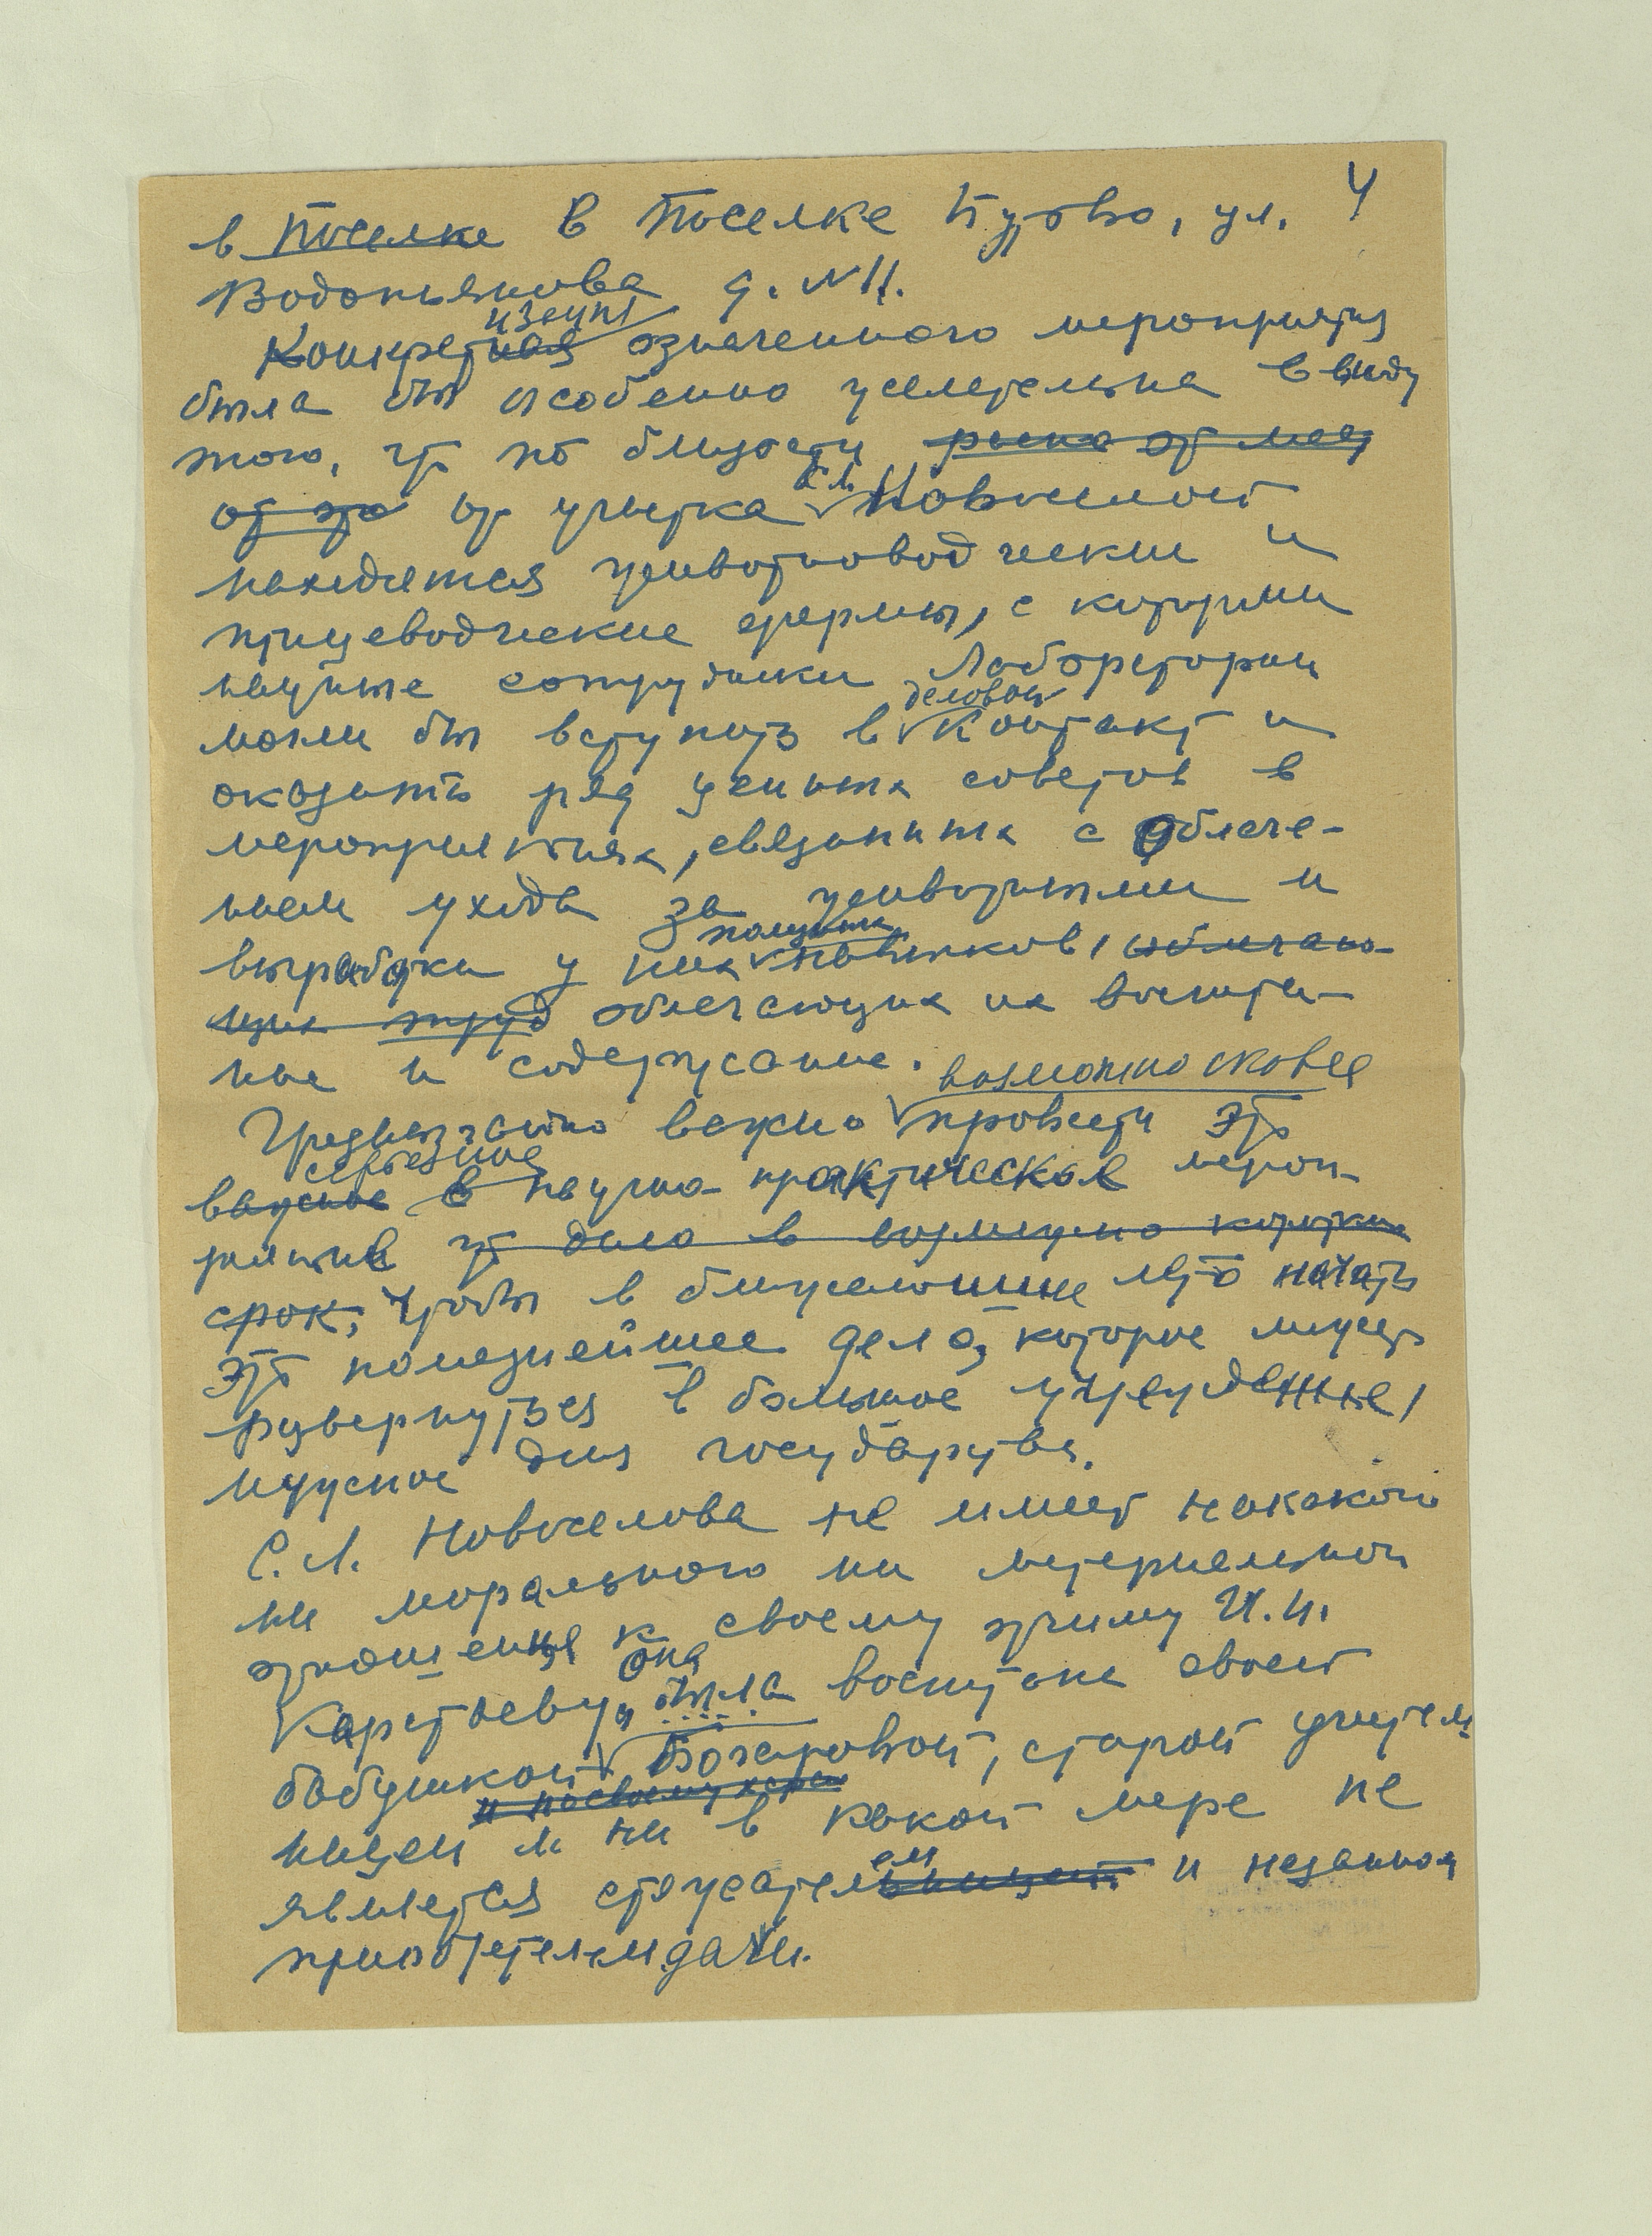 4
в Поселке в Поселке Бутово, ул.
Водопьянова д. № 11.
Конкретизация означенного мероприятия
была бы особенно желательна ввиду
того, что по близости рядом от мест
от это от участка С.Л. Новоселовой
находятся животноводческие и
птицеводческие фермы, с которыми
научные сотрудники Лаборатории
могли бы вступить в деловой контакт и
оказать ряд ценных советов в
мероприятиях, связанных с облегче-
нием ухода за животными и
выработки у них полезных навыков, облегчаю-
щих труд облегчающих их воспита-
ние и содержание.
Чрезвычайно важно возможно скорее провести это
важное в серьезное научно-практическое мероп-
риятие что дало в возможно короткий
срок, чтобы в ближайшее лето начать
это полезнейшее дело, которое может
развернуться в большое учреждение,
нужное для государства.
С.Л. Новоселова не имеет никакого
ни морального ни материального
отношения к своему отчиму И.И.
Карстьеву, она была воспитана своей
бабушкой Бочаровой, старой учитель-
ницей и ни в какой мере не
является стяжателем и незаконным
приобретателем дачи.